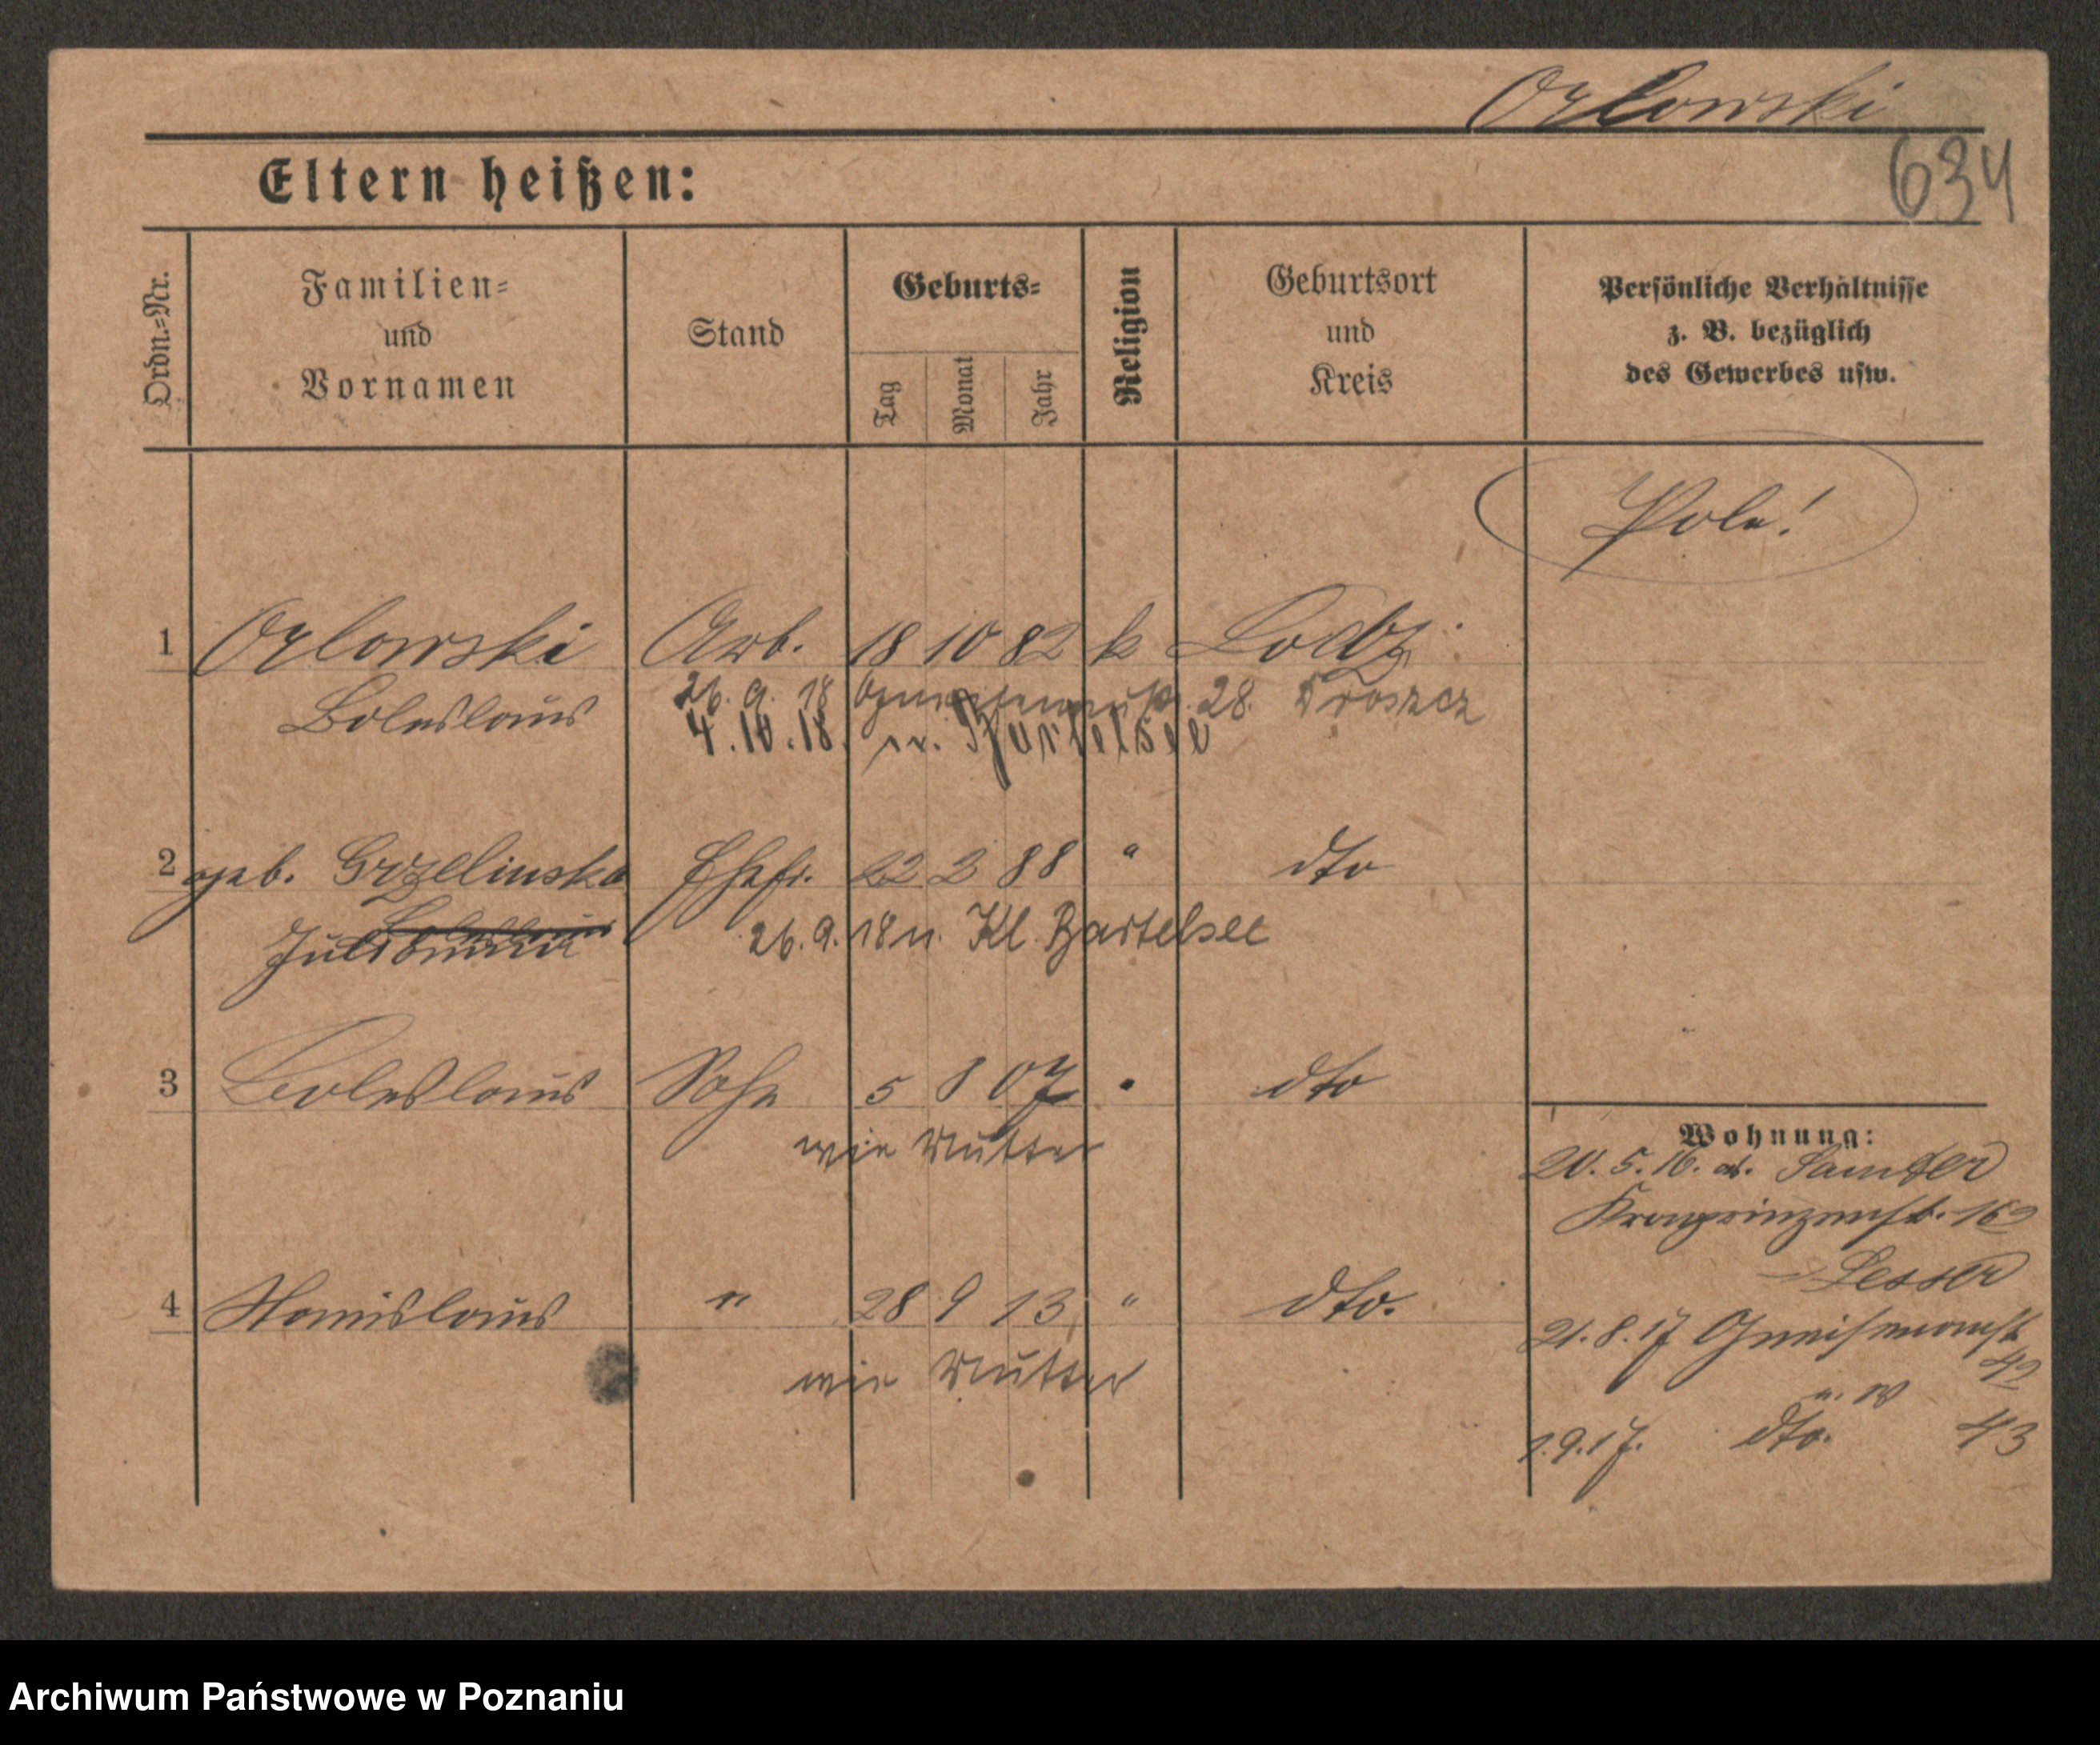 Orlowski
634
Eltern heißen:
Ordn.=Nr.
Familien=
und
Vornamen
Stand
Geburts=
Tag
Monat
Jahr
Religion
Geburtsort
und
Kreis
Persönliche Verhältnisse
z. B. bezüglich
des Gewerbes usw.
Pole!
1 Orlowski Arb. 18 10 82 k Lodz
Boleslaus 26. 9. 18 28. Troszcz
4. 10. 18. n. Bartelsee
2 geb. Grzelinska Ehefr. 22 2 88 " dto
26. 9. 18 n. Kl. Bartelsee
3 Boleslaus Sohn 5 8 07 " dto
wie Mutter
Wohnung:
20. 5. 16. ab. Samter
Kronprinzenst. 16
Lesser
4 Stanislaus " 28 9 13 " dto.
21. 8. 17 Gneisenaust
42
wie Mutter
1. 9. 17. dto. 43
Archiwum Państwowe w Poznaniu